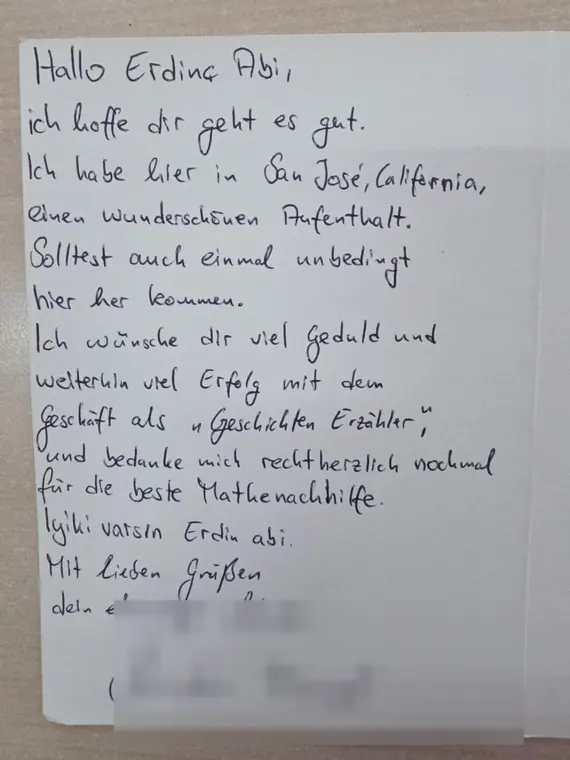 Hallo Erdinç Abi,
ich hoffe dir geht es gut.
Ich habe hier in San José, California,
einen wunderschönen Aufenthalt.
Solltest auch einmal unbedingt
hier her kommen.
Ich wünsche dir viel Geduld und
weiterhin viel Erfolg mit dem
Geschäft als „Geschichten Erzähler",
und bedanke mich rechtherzlich nochmal
für die beste Mathenachhilfe.
Iyiki varsin Erdin abi.
Mit lieben Grüßen
dein